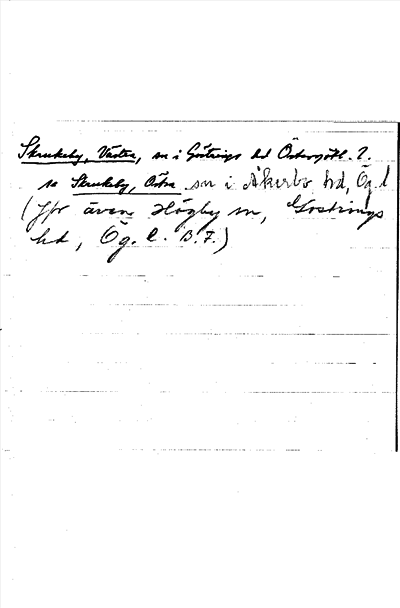 Skrukeby, Västra, sn i Göstrings hd Östergötl. l.
se Skrukeby, Östra sn i Åkerbo hd, Ög. l
(Jfr även Högby sn, Gostrings
hd, Ög. l. B.F.)